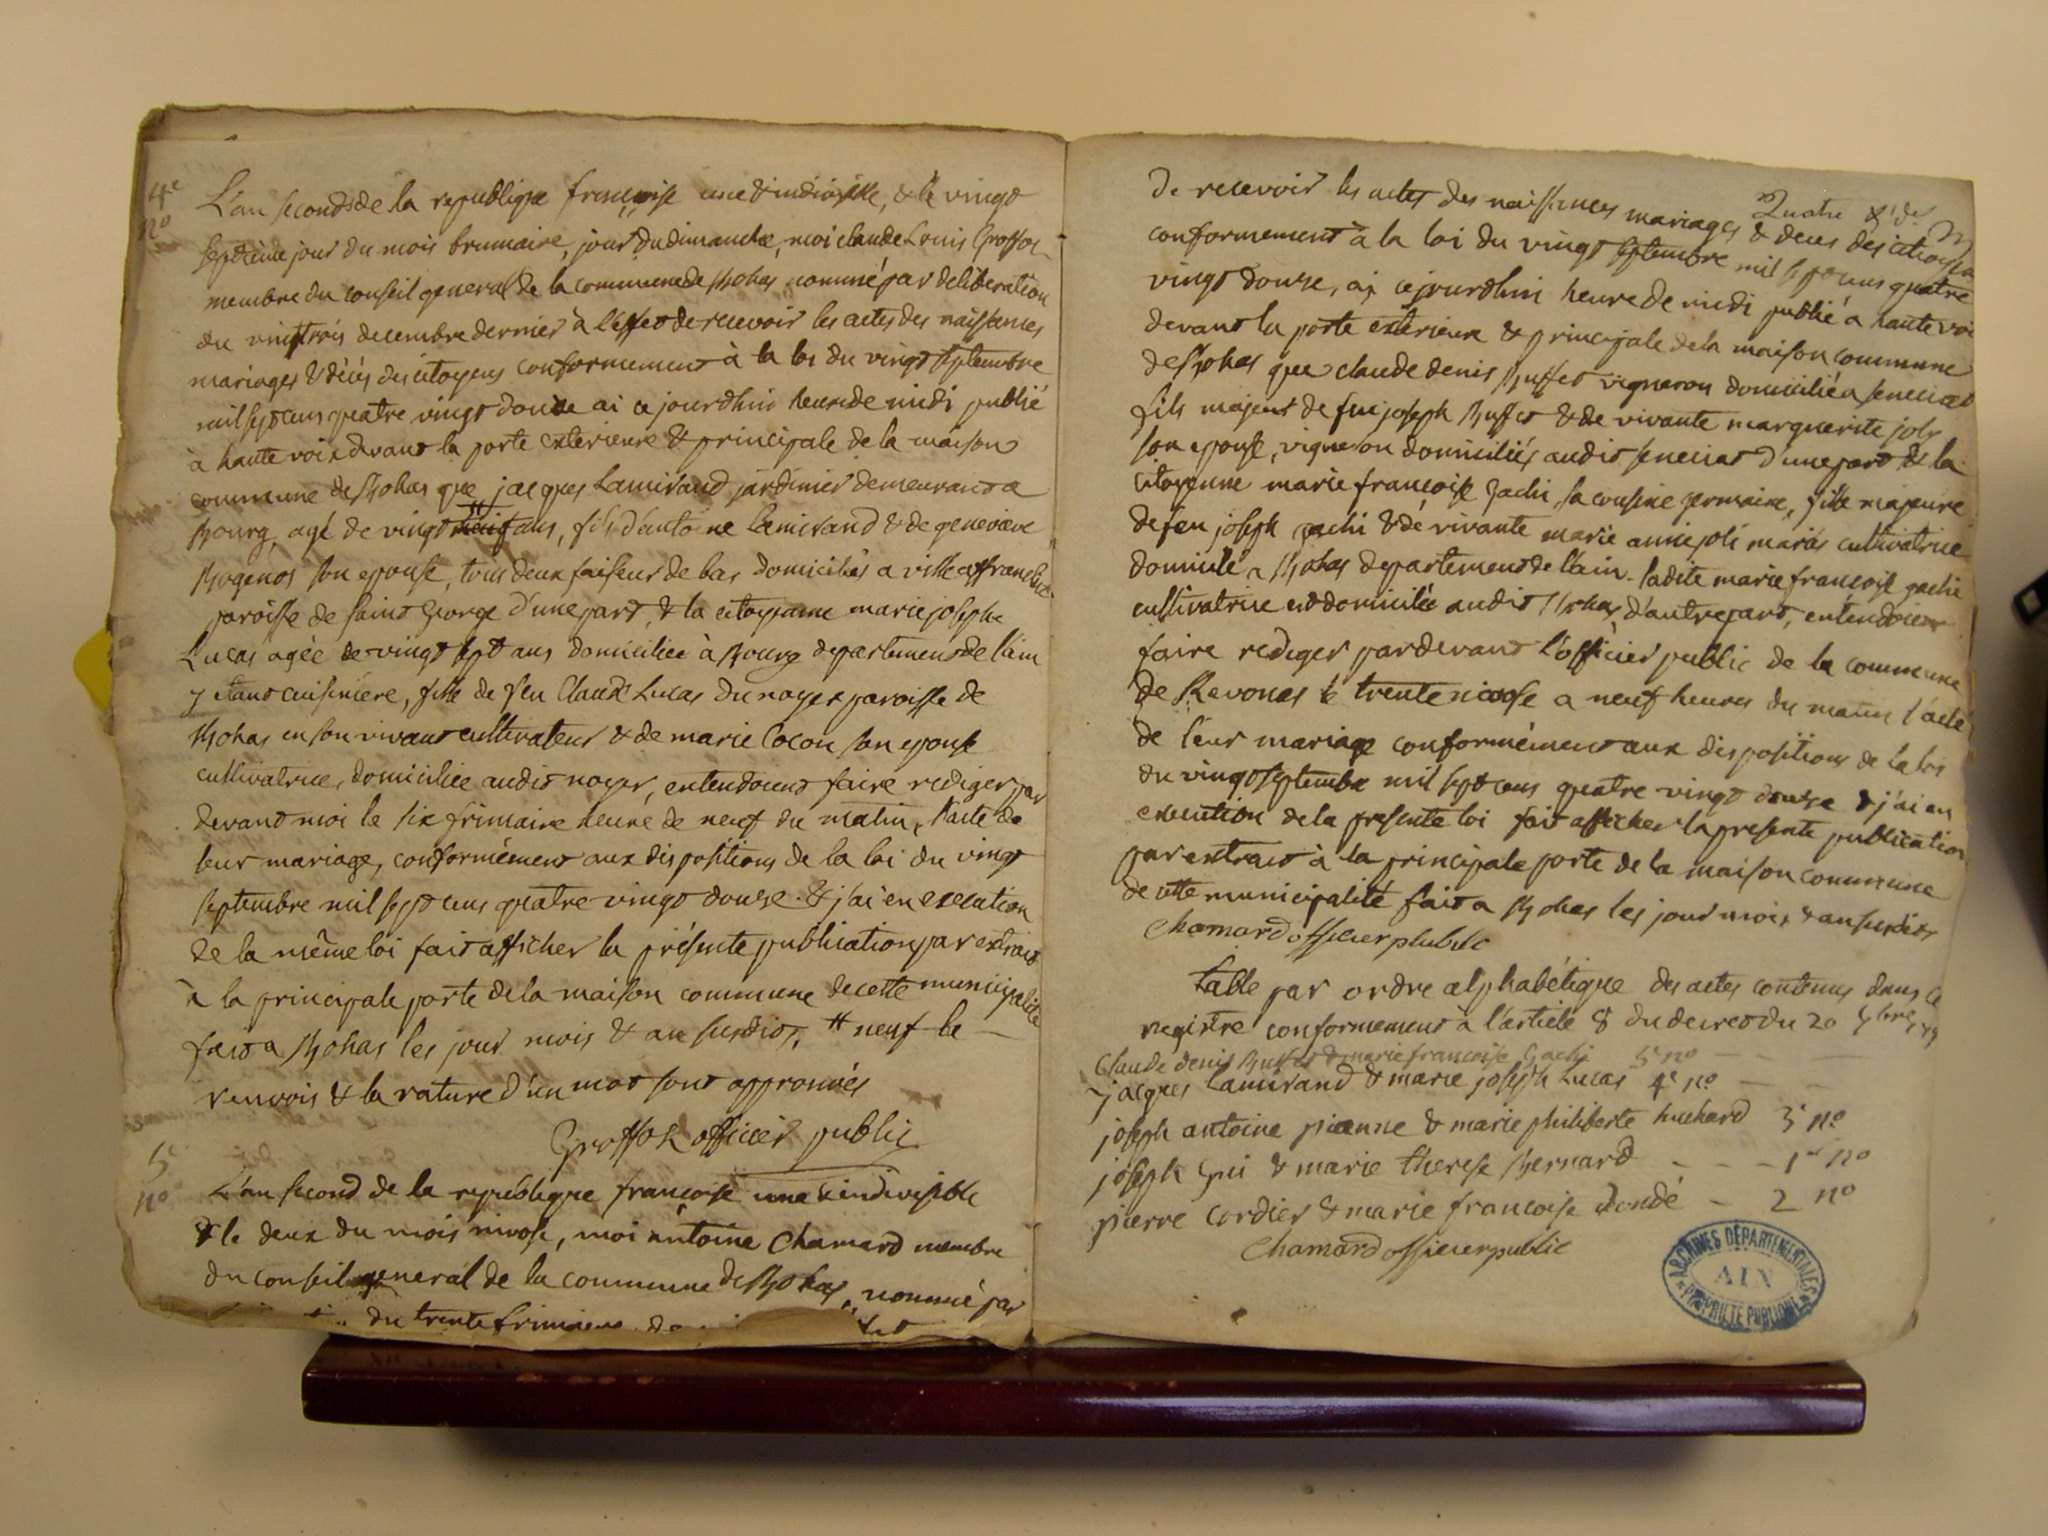 4e
no
L'an second de la republique françoise une & indivisible, & le vingt
septieme jour du mois brumaire, jour du dimanche, moi claude Louis Groffoz
membre du conseil general de la commune de Bohas nommé par deliberation
du vingt trois decembre dernier à l'effet de recevoir les actes des naissances
mariages & décès des citoyens conformement à la loi du vingt septembre
mil sept cens quatre vingt douze ai ce jourdhui heure de midi publié
à haute voix devant la porte exterieure & principale de la maison
commune de Bohas que jacques Lamirand jardinier demeurant a
Bourg, agé de vingt ans, fils d'antoine lamirand & de genevieve
son epouse, tous deux faiseur de bas domiciliés a ville affranchie
paroisse de saint George d'une part, & la citoyenne marie josephe
Lucas agée de vingt sept ans domiciliée à Bourg departement de l'ain
y etant cuisiniere, fille de feu Claude Lucas du noyer paroisse de
Bohas en son vivant cultivateur & de marie Cocon son epouse
cultivatrice, domiciliée audit noyer, entendoient faire rediger par
devant moi le six frimaire heure de neuf du matin, l'acte de
leur mariage, conformément aux dispositions de la loi du vingt
septembre mil sept cens quatre vingt douze. & j'ai en execution
de la même loi fait afficher la présente publication par extrait
à la principale porte de la maison commune de cette municipalité
fait a Bohas les jour mois & an susdits, # neuf le
renvois & la rature d'un mot sont approuvés
Groffoz officier public
5e
no
L'an second de la republique françoise une & indivisible
& le deux du mois nivose, moi antoine Chamard membre
du conseil general de la commune de Bohas, nommé par
du trente frimaire
Quatre
de recevoir les actes des naissances mariages & deces des citoyens
conformement à la loi du vingt septembre mil sept cens quatre
vingt douze, ai ce jourdhui heure de midi publié a haute voix
devant la porte exterieure & principale de la maison commune
de Bohas que claude denis Buffet vigneron domicilié a senecias
fils majeur de feu joseph Buffet & de vivante marguerite joly
son epouse, vigneron domiciliés audit senecias d'une part & la
Citoyenne marie françoise Gachi, sa cousine germaine, fille majeure
de feu joseph gachi & de vivante marie anne joli mariés cultivatrice
domicilé a Bohas departement de l'ain. ladite marie françoise gachi
cultivatrice est domiciliée audit Bohas, d'autre part, entendoient
faire rediger pardevant l'officier public de la commune
de Revonas le trente nivose a neuf heures du matin l'acte
de leur mariage conformément aux dispositions de la loi
du vingt septembre mil sept cens quatre vingt douze & j'ai en
execution de la presente loi fait afficher la presente publication
par extrait à la principale porte de la maison commune
de cette municipalité fait a Bohas les jour mois & an susdits
Chamard officier plublic
table par ordre alphabétique des actes contenus dans ce
registre conformement à l'article 8 du decret du 20 7bre
Claude denis Buffet & marie françoise Gachi 5e no
jacques Lamirand & marie joseph Lucas 4e no
joseph antoine pianne & marie philiberte huchard 3e no
joseph Gui & marie therese Bernard - - - 1er no
pierre cordier & marie francoise dondé - 2 no
Chamard officier public
ARCHIVES DÉPARTEMENTALES
AIN
PROPRIÉTÉ PUBLIQUE